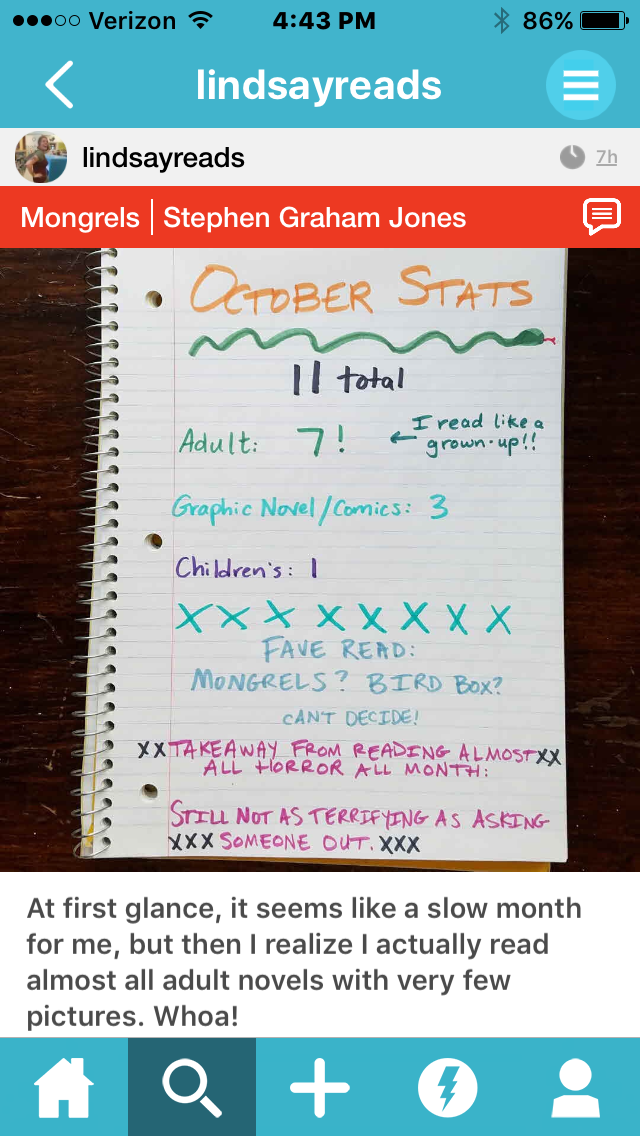 Verizon 4:43 PM 86%
lindsayreads
lindsayreads 7h
Mongrels | Stephen Graham Jones
OCTOBER STATS
11 total
Adult: 7! ← I read like a
grown-up!!
Graphic Novel/Comics: 3
Children's: 1
X X X X X X X X
FAVE READ:
MONGRELS? BIRD BOX?
CANT DECIDE!
XX TAKEAWAY FROM READING ALMOST XX
ALL HORROR ALL MONTH:
STILL NOT AS TERRIFYING AS ASKING
XXX SOMEONE OUT. XXX
At first glance, it seems like a slow month
for me, but then I realize I actually read
almost all adult novels with very few
pictures. Whoa!